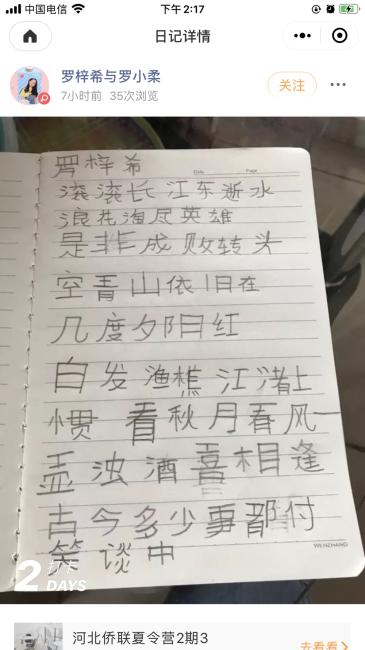 中国电信
下午2:17
日记详情
罗梓希与罗小柔
7小时前 35次浏览
关注
Date Page
罗梓希
滚滚长江东逝水
浪花淘尽英雄
是非成败转头
空青山依旧在
几度夕阳红
白发渔樵江渚上
惯看秋月春风一
壶浊酒喜相逢
古今多少事都付
笑谈中
WENZHANG
2 打卡
DAYS
河北侨联夏令营2期3
去看看